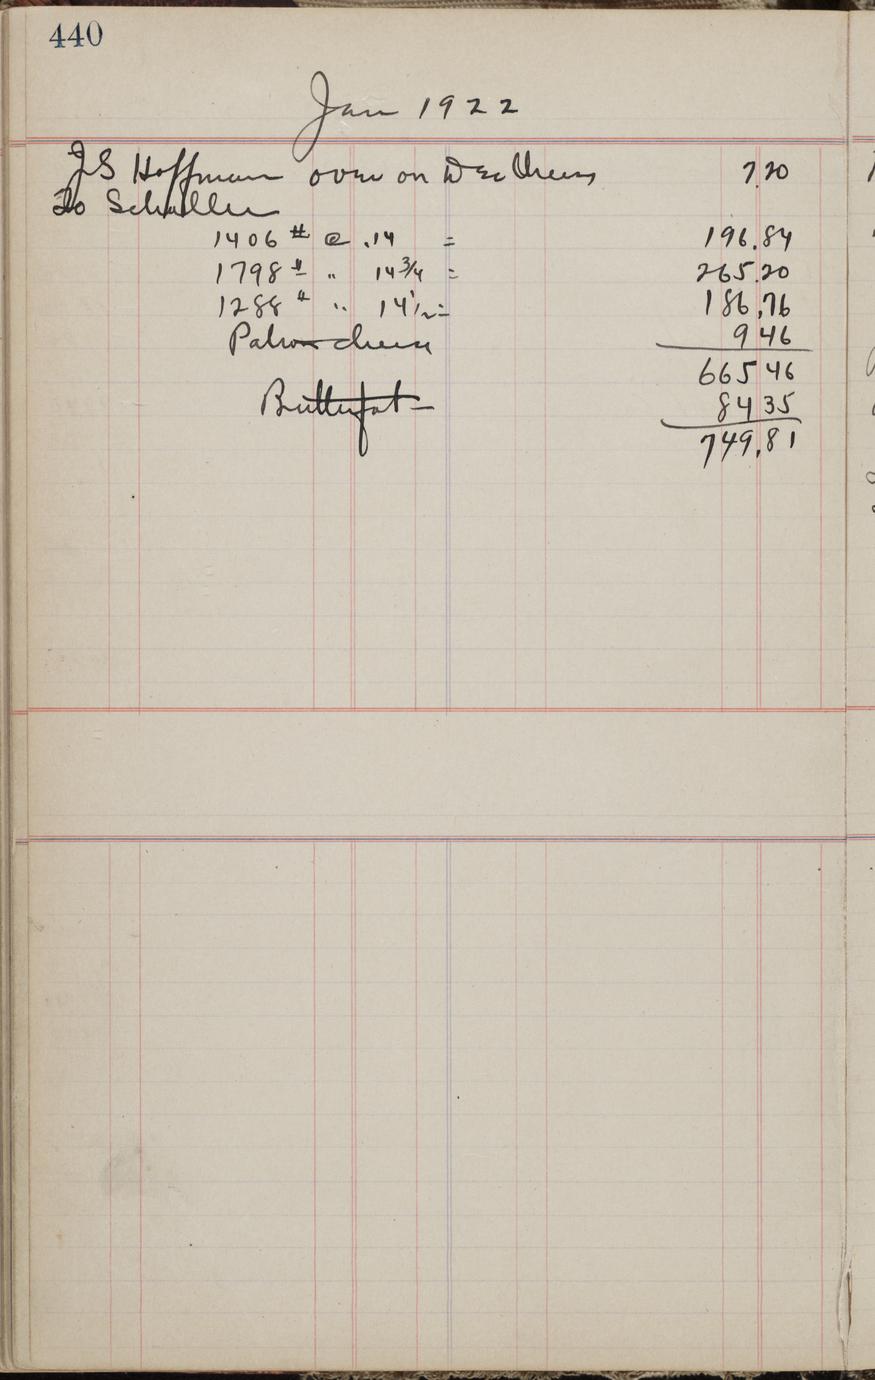 440
Jan 1922
JS Hoffman over on Dec Chees 7.20
To
1406 # @ .14 = 196.84
1798 # " 14 3/4 = 265.20
1288 # " 14 1/2 = 186.76
Patron cheese 9 46
665 46
Butterfat 84 35
749.81